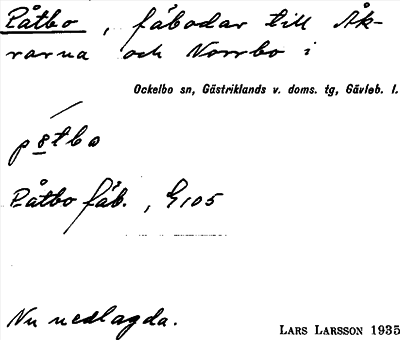 Påtbo, fäbodar till Åk-
rarna och Norrbo i
Ockelbo sn, Gästriklands v. doms. tg, Gävleb. l.
Påtbo fäb., G105
Nu nedlagda.
LARS LARSSON 1935